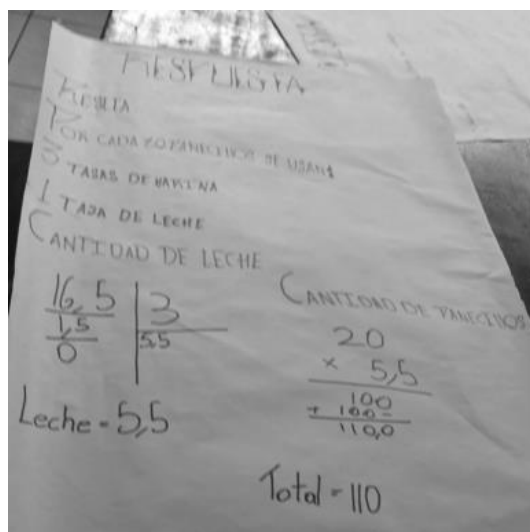 RESPUESTA
RESETA
POR CADA 20 PANECILLOS SE USAN:
3 TASAS DE HARINA
1 TAJA DE LECHE
CANTIDAD DE LECHE
16,5 3
1,5 5,5
0
Leche = 5,5
CANTIDAD DE PANECILLOS
20
× 5,5
100
+ 100-
110,0
Total = 110